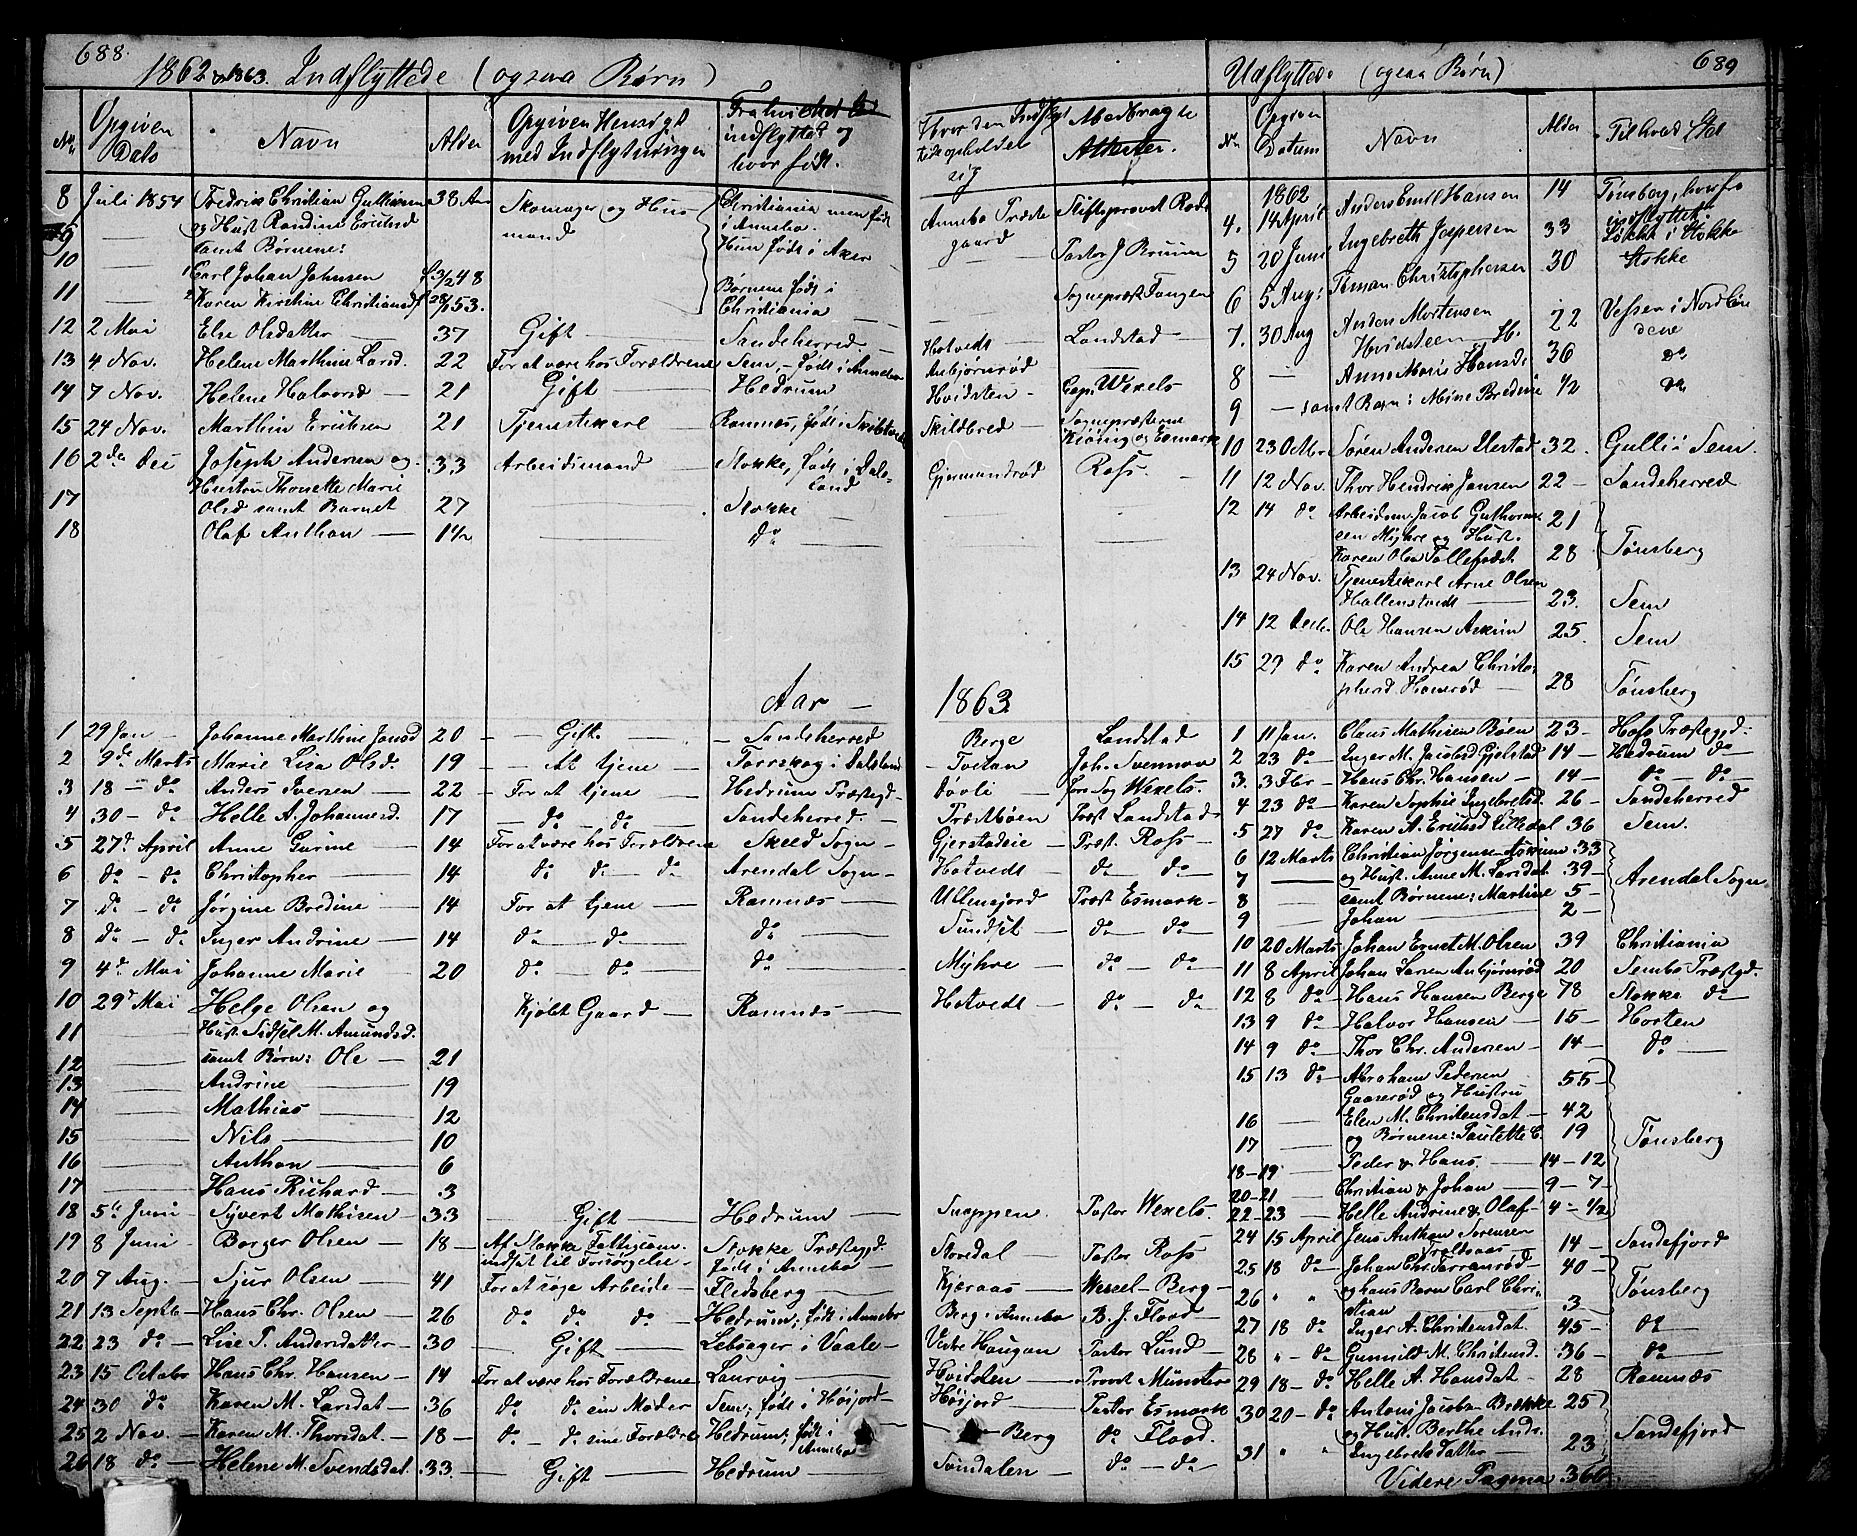 688.
1862 & 1863. Indflyttede (ogsaa Børn)
No. | Opgiven Dato | Navn | Alder | Opgiven Hensigt med Indflytningen | indflyttet og hvor født.
8 Juli 1854 Fredrik Christian Gulliksen 38 Aar Skomager og Huus Christiania men født
9 — og Hust Randine Eriksd mand i Annebo.
samt Børnene: Hun født i Aker
10 — 1 Carl Johan Johnsen f 3/2 48 Børnene født i
11 — 2 Karen Kirstine Christiansd f 28/1 53. Christiania —
12 2 Mai Else Olsdatter — 37 Gift — Sandeherred —
13 4 Nov. Helene Marthine Larsd. 22 For at være hos Forældrene Sem, — født i Annebo
14 7 Nov. Helene Halvorsd — 21 Gift — Hedrum —
15 24 Nov. Marthin Eriksen 21 Tjenestekarl — Ramnæs, født i
16 2de Dec Joseph Andersen og 33 Arbeidsmand — Stokke, født i Dals-
Hustru Thonette Marie land
17 Olsd samt Barnet 27 — Stokke —
18 Olaf Anthon — 1½ — do
Aar —
1 29 Jan — Johanne Marthine Jonsd 20 — Gift. — Sandeherred
2 9de Marts Marie Lisa Olsd. 19 — At tjene — Torrskog i Dalsland
3 18 — do Anders Iversen — 22 — For at tjene — Hedrum Præstegd —
4 30 — do Helle A. Johannesd. 17 — do — do — Sandeherred —
5 27d April Anne Gurine — 14 For at være hos Forældrene Skeed Sogn —
6 do — do Christopher — 14 do do — do Arendal Sogn —
7 do — do Jørgine Bredine — 14 For at tjene — Ramnæs —
8 do — do Inger Andrine — 14 do — do — do —
9 4de Mai Johanne Marie — 20 do — do — do —
10 29d Mai Helge Olsen og Kjøbt Gaard — Ramnæs —
11 — Hust: Sidsel M. Amundsd.
12 — samt Børn: Ole — 21
13 — Andrine — 19
14 — Mathias — 12
15 — Nils — 10
16 — Anthon — 6
17 — Hans Richard — 3
18 5te Juni — Syvert Mathisen — 33 — Gift — Hedrum —
19 8 Juni — Borger Olsen — 18 — Af Stokke Fattigcom. Stokke Præstegd
indsat til Forsørgelse — født i Annebo —
20 7 Aug. — Sjur Olsen — 41 For at søge Arbeide — Flesberg —
21 13 Septbr — Hans Chr. Olsen — 26 do do do — Hedrum; født i Annebo
22 23 do — Lise P. Andersdatter — 30 — Gift — Lebsager i Vaale —
23 15 Octobr Hans Chr. Hansen — 14 For at være hos Forældrene Laurvig —
24 30 do — Karen M. Larsdat — 36 do do sin Moder Sem; født i Høijord —
25 2 Nov. — Karen M. Thorsdat — 18 — do — do sine Forældre Hedrum; født i Annebo
26 18 do — Helene M. Svendsdat 33. — Gift — Hedrum —
689
Udflyttede (ogsaa Børn)
Hvor den Indflyttede opholder sig | Medbragte Attester. | No. | Opgiven Datum | Navn | Alder | Til hvad Sted
Annebo Præste gaard Stiftsprovst Rode
Pastor J Bruun
Sognepræst Fangen
Hotvedt — Landstad —
Anbjørnrød —
Hvidsten — Cap. Wexels
Skildbred — Sognepræsterne Kiönig og Esmark
Gjermundrød Ross. —
1862
4. 14 April Anders Emil Hansen 14 Tønsberg, hvorfra indflyttet.
5 20 Juni Ingebreth Jespersen 33 Løkke i Stokke
6 5 Aug: Timan Christophersen 30 Stokke
7. 30 Aug Anders Mortensen Hvidsteen — H. 22 Vefsen i Nordlandene
8 — Anne Marie Hansd. 36 do
9 — samt Barn: Mine Bredine ½ do
10 23 Obr. Søren Andersen Ilestad 32. Gulli i Sem.
11 12 Nov. Thor Hendrik Jansen 22 — Sandeherred
12 14 do Arbeidsm. Jacob Guthorm- 21
sen Myhre og Hust. Tønsberg
Karen Olea Tollefsdat. 28
13 24 Nov. Tjenestekarl Arne Olsen
Hallenstvedt — 23. Sem
14 12 Decbr. Ole Hansen Askim 25. Sem
15 29 do Karen Andrea Christo-
phersd Honerød — 28 Tønsberg
1863
Berge Landstad — 1 11 Jan. Claus Mathisen Bøen 23 — Hofs Præstegd:
— Tvetan Joh. Svennov 2 23 do — Inger M. Jacobsd Gjelstad 14 — Hedrum do —
Døvle — fors Sog Wexels. 3. 3 Fbr — Hans Chr. Hansen — 14 — do — do —
Præstbøen Præst Landstad 4 23 do — Karen Sophie Ingebretsd. 26 — Sandeherred
Gjerstadeie — Præst. Ross — 5 27 do — Karen A. Eriksd Lilledal 36 Sem.
Hotvedt — do — do — 6 12 Marts Christian Jørgensen Askim 33
Ullensjord Præst Esmark — 7 — og Hust: Anne M. Larsdat 39 — Arendal Sogn.
Sundset — do — do — 8 — samt Børnene: Martine 5 —
9 — Johan — 2 —
Myhre — do — do — 10 20 Marts Johan Ernst M. Olsen 39 Christiania
11 8 April Johan Larsen Anbjørnrød 20 Sembo Præstegd.
Hotvedt — do — do — 12 8 do — Hans Hansen Berge 78 Stokke do —
13 9 do — Halvor Hansen — 15 — Horten
14 9 do — Thor Chr. Andersen — 14 — do —
15 13 do — Abraham Pedersen 55 —
Gaaserød og Hustru
16 — Elen M. Christensdat — 42
17 — og Børnene: Paulette C. 19 Tønsberg
18–19 — Peder & Hans. — 14 – 12
20–21 — Christian & Johan — 9 – 7 —
Snappen. Pastor Wexels. 22–23 — Helle Andrine & Olaf — 4 – ½
Storedal Pastor Ross 24 15 April Jens Anthon Sorensen — 14 — Sandefjord
Kjæraas — Wexel – Berg — 25 18 do — Johan Chr. Farranrød — 40 —
Berg i Annebo B. J. Flood — 26 " " og hans Barn Carl Chri- Tønsberg
stian — 3 —
Vestre Haugan Pastor Lund — 27 18 do — Inger A. Christensdat. 45 — do —
Hvidsten — Provst Münster 28 " – do — Gunnild M. Christensd. 36 — do —
Høijord — Pastor Esmark 29 18 — do Helle A. Hansdat — 28 Ramnæs
— Berg do Flood. 30 20 — do Antoni Jacobsn Brække 25
og Hust. Berthe Andr. Sandefjord
Svindalen — do — do — 31 " " Ingebretsdatter — 23
Videre Pagina 366.